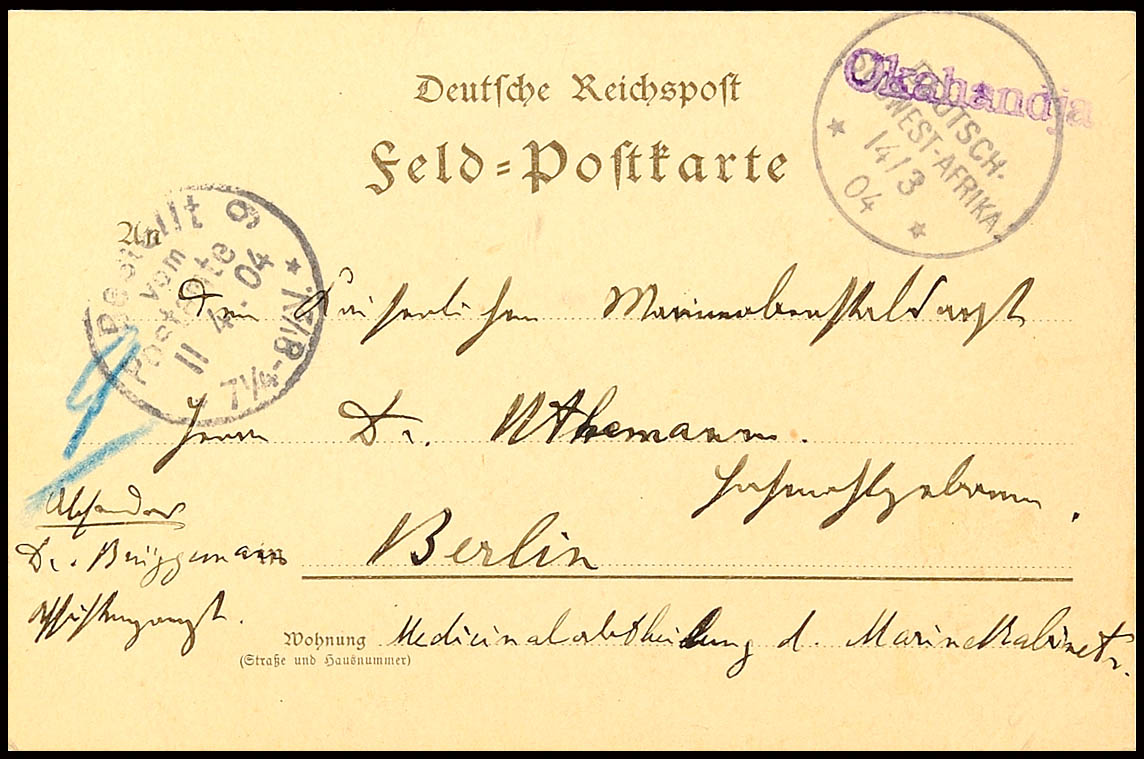 Deutsche Reichspost
Feld=Postkarte
Okahandja
DEUTSCH-
SÜDWEST-AFRIKA.
14/3
04
An
Bestellt
vom
Postamte
9
11 4. 04
7¼-8¼V.
Dem Kaiserlichen Marineoberstabsarzt
Herrn Dr. Uthemann.
Hochwohlgeboren.
Berlin
9
Absender
Dr. Brüggemann
Assistenzarzt.
Wohnung Medicinalabtheilung d. Marine Kabinets.
(Straße und Hausnummer)